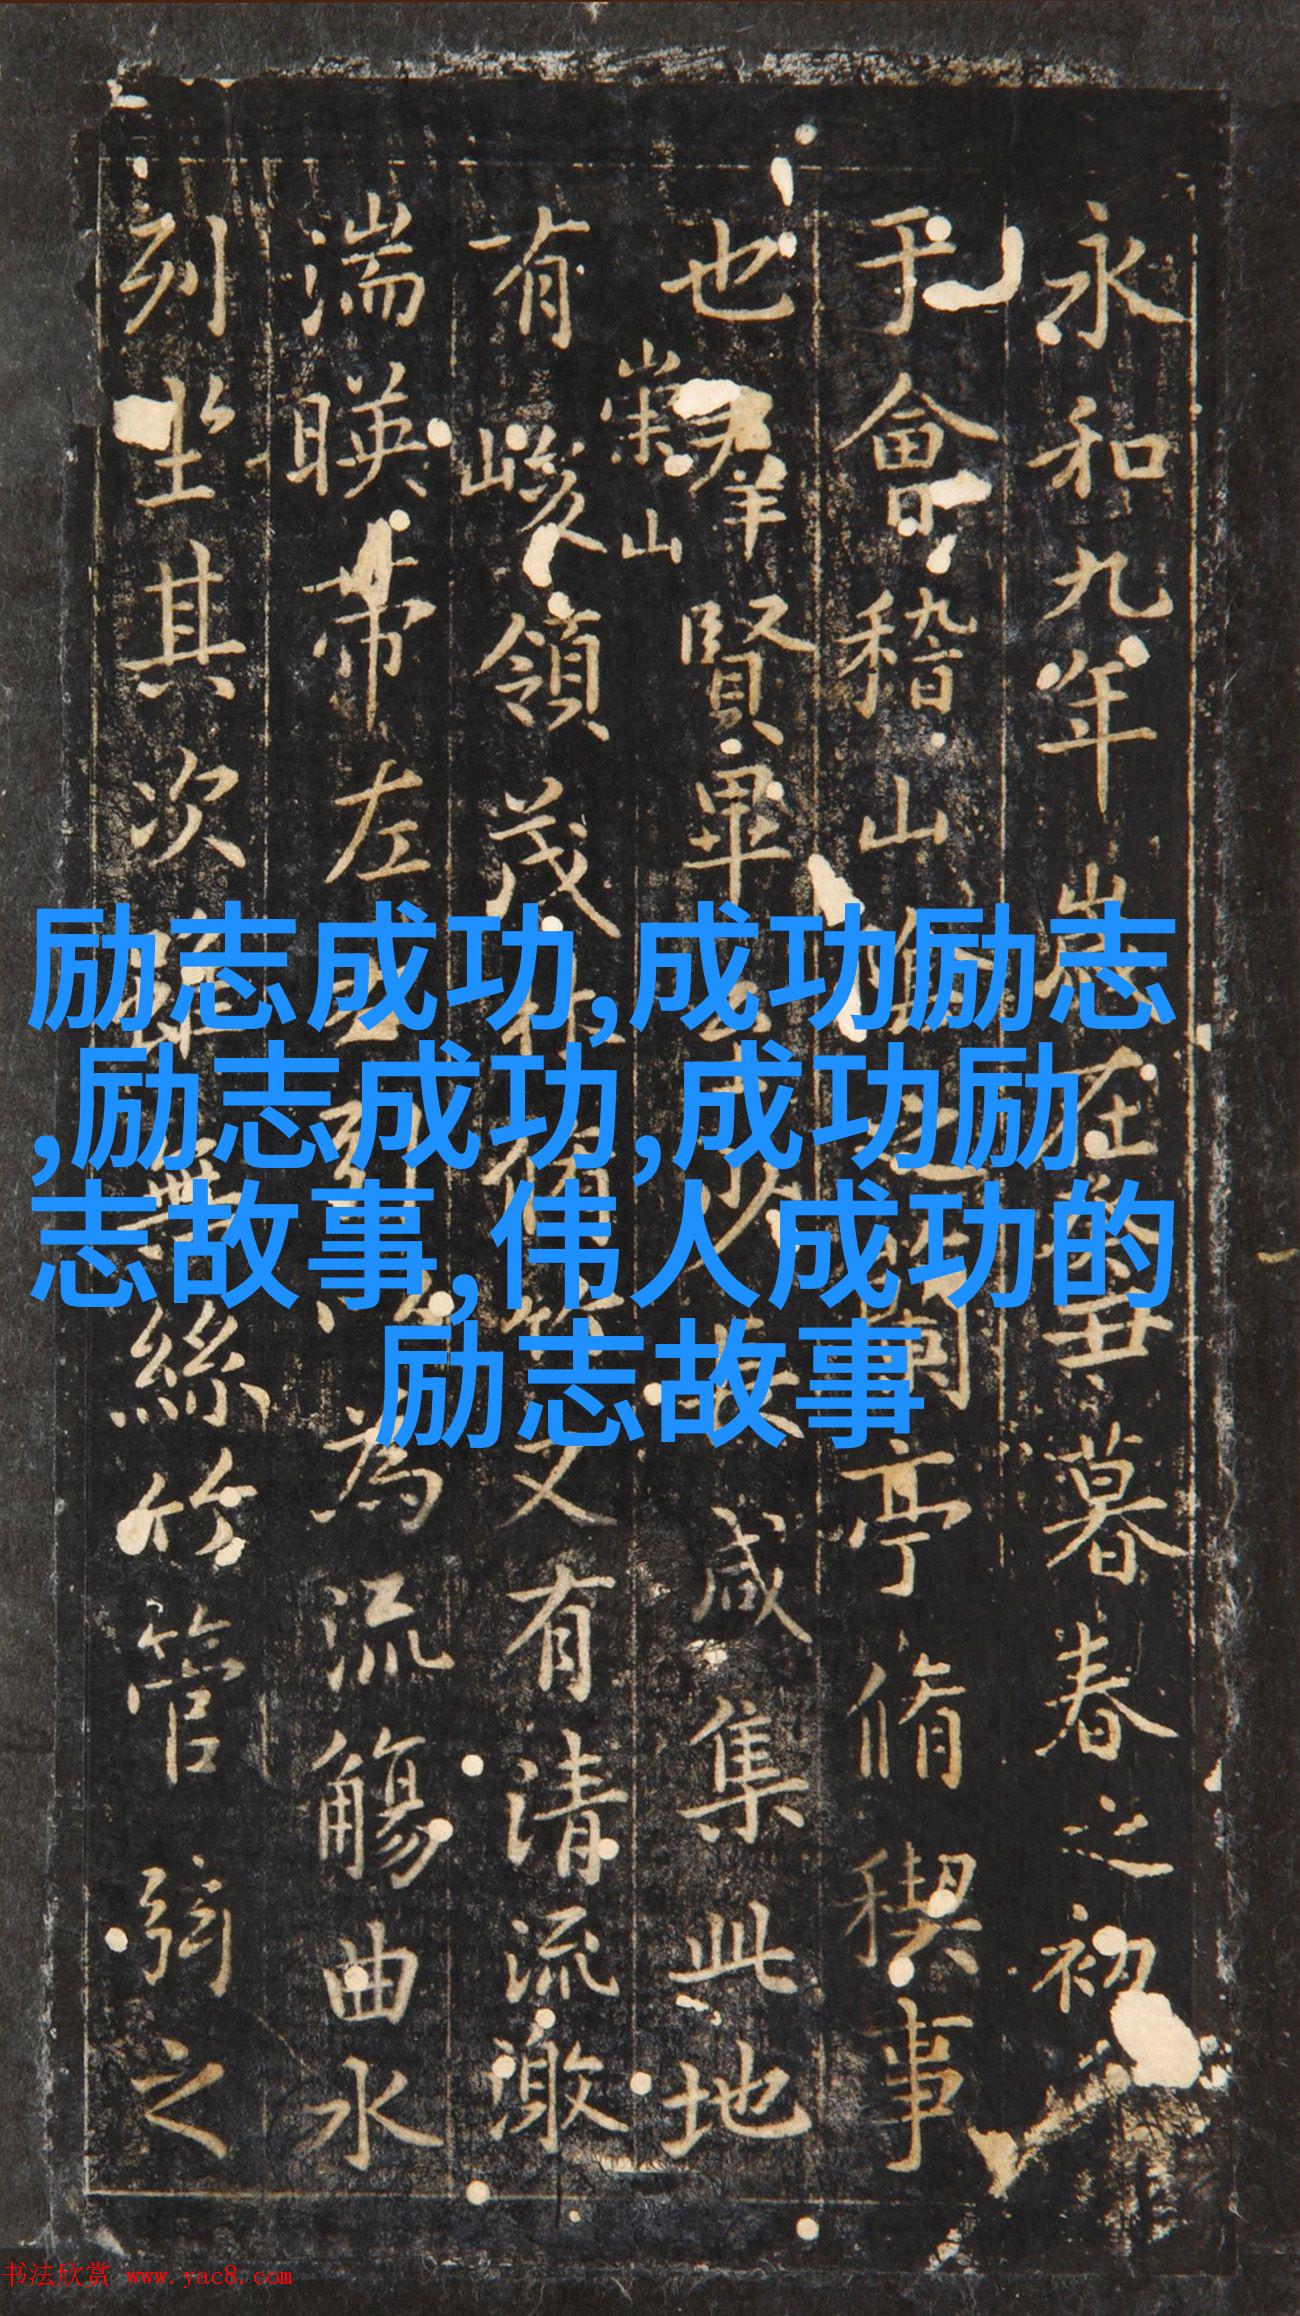 永和九年歲在癸丑暮春之初
于會稽山陰之蘭亭脩稧事
也羣賢畢至少長咸集此地
崇山
有峻領茂林脩竹又有清流激
湍暎帶左右引以為流觴曲水
列坐其次雖無絲竹管弦之
励志成功,成功励志
,励志成功,成功励
志故事,伟人成功的
励志故事
书法欣赏 www.yac8.com